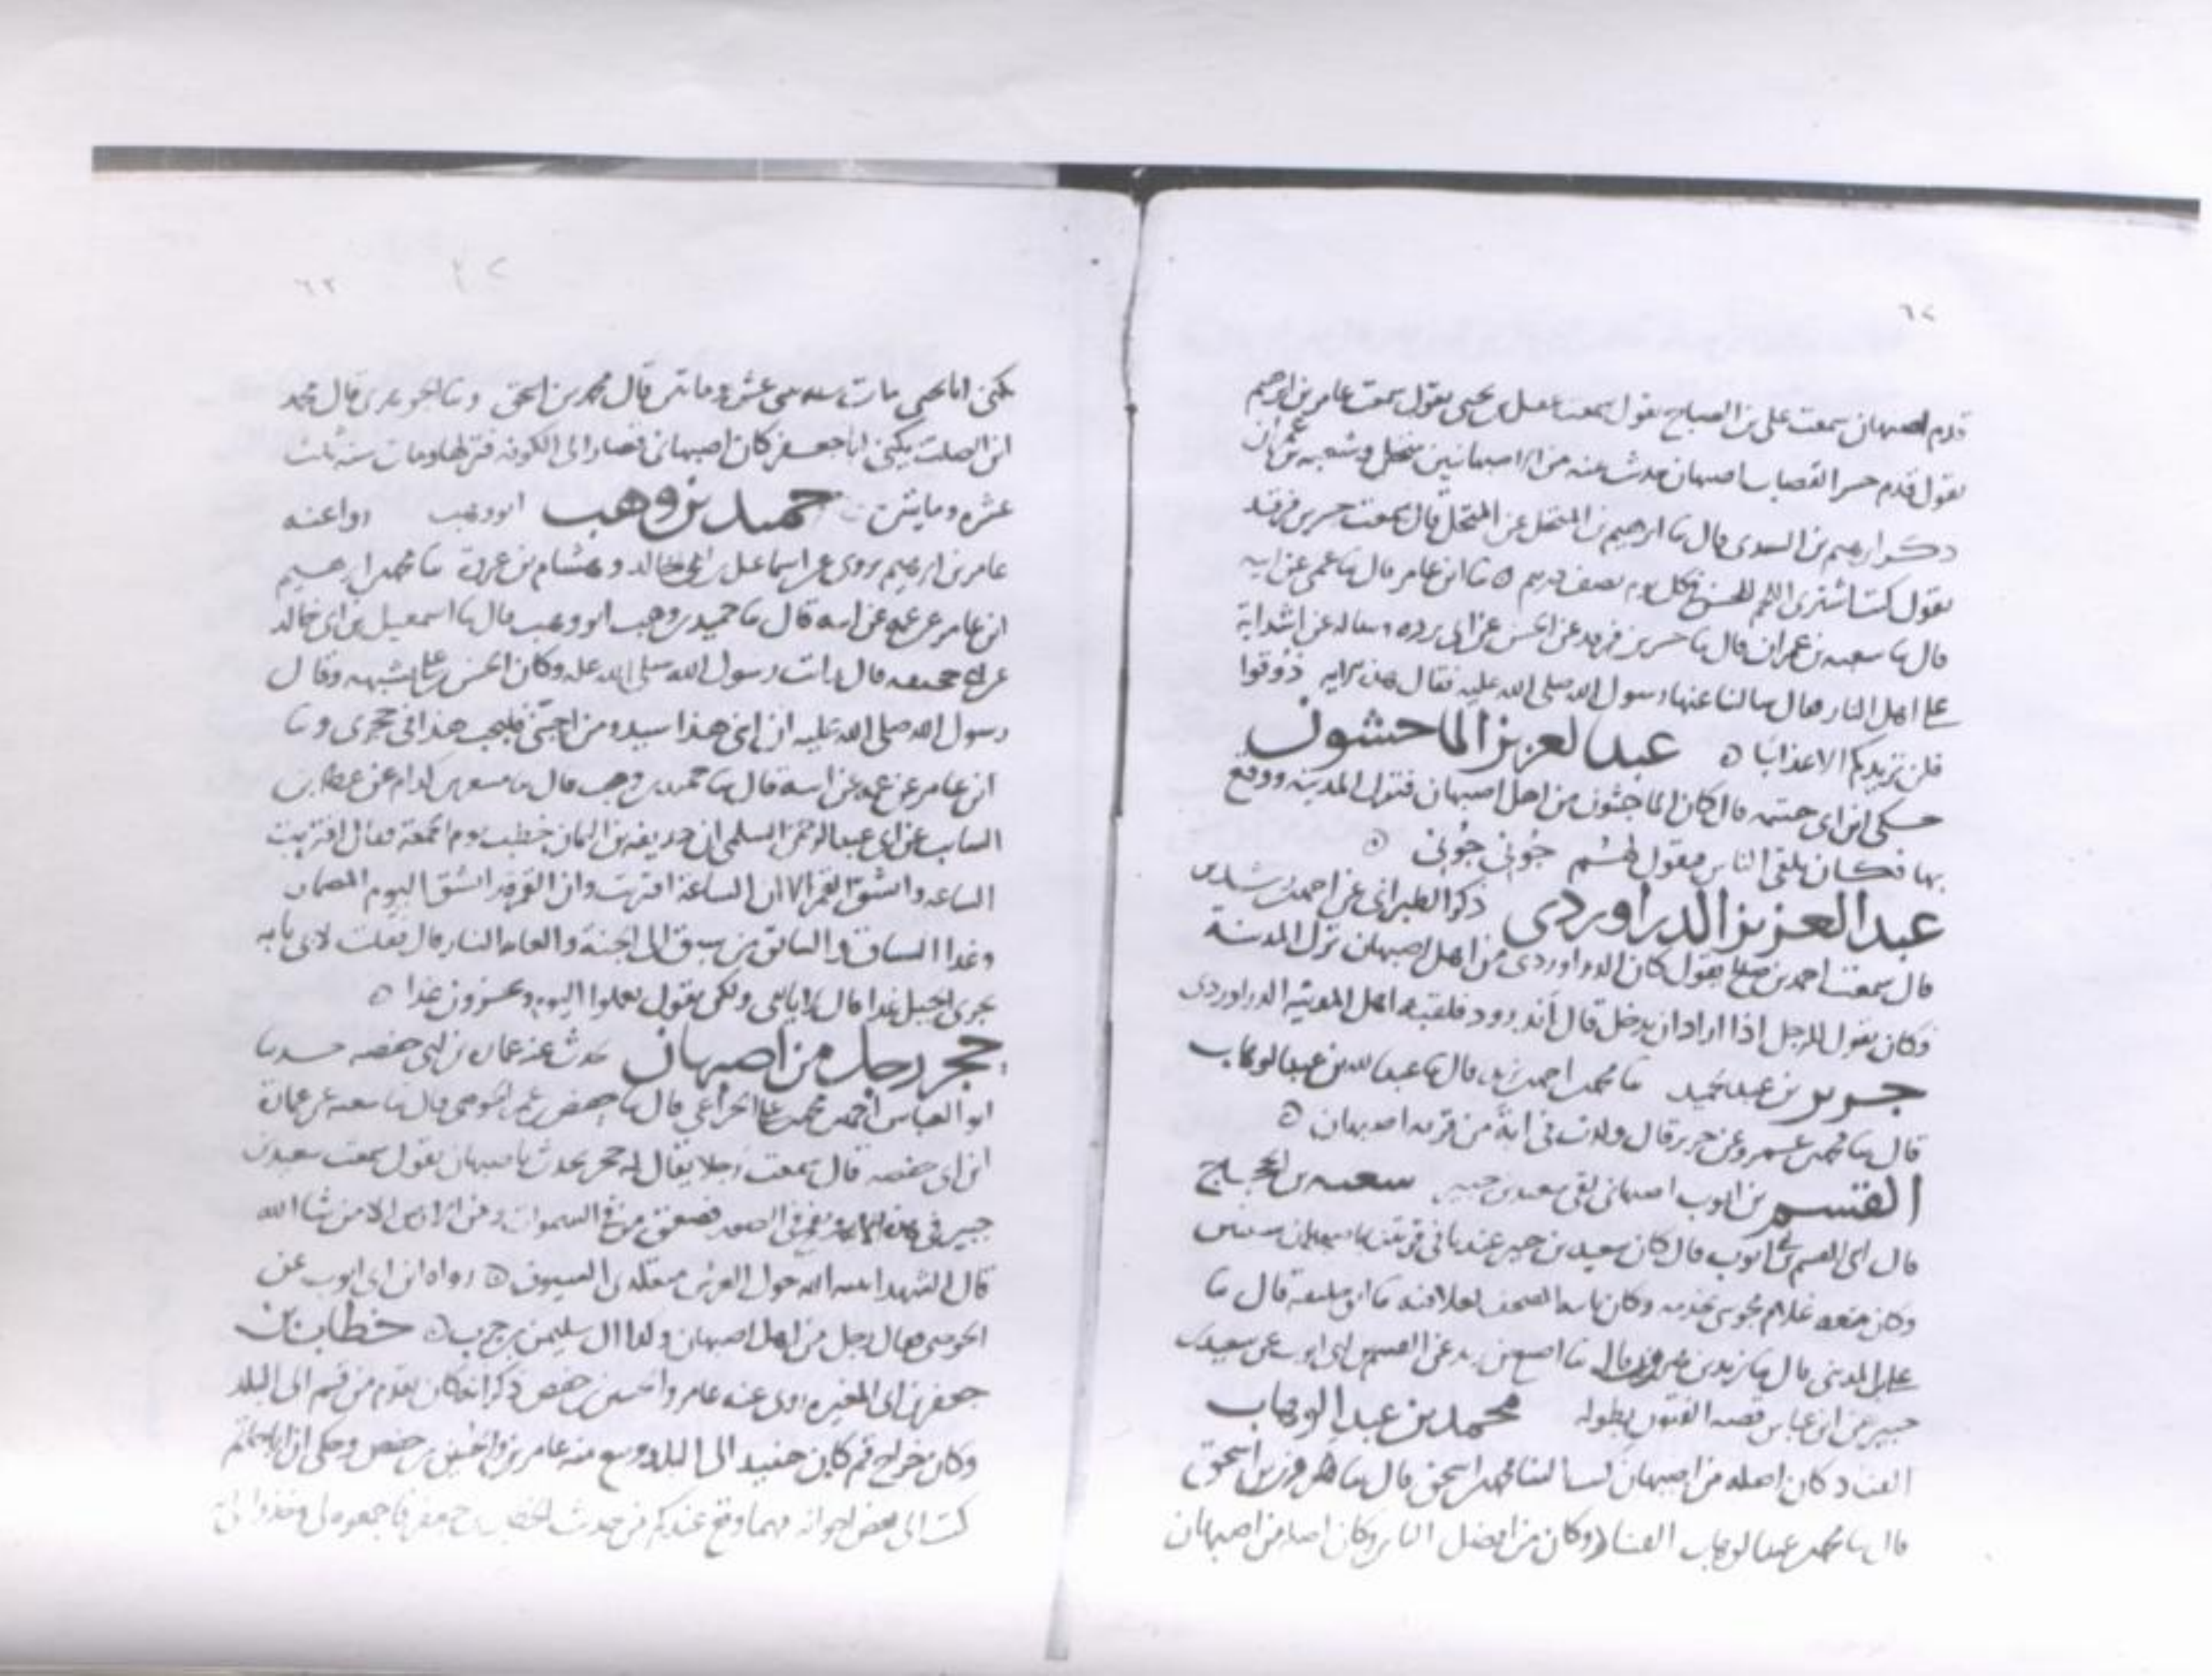 ٦٢
قدم اصبهان سمعت على بن الصباح يقول سمعت يحيى يقول سمعت عامر بن ابرهيم
يقول قدم القصاب اصبهان حدث عنه من الاصبهانيين
ابرهيم بن السندى قال ما ابرهيم بن المتحل عن المتحل قال سمعت بن فرقد
يقول كنت اشترى اللحم للحسن كل يوم نصف درهم ما ابن عامر قال ما عمى عن ابيه
قال ما بن عمران قال ما بن فرقد عن الحسن عن ابى برزه عن اشد اية
على اهل النار قال سالنا عنها رسول الله صلى الله عليه فقال هذه الايه ذوقوا
فلن نزيدكم الا عذابا عبد العزيز الماحشون
حكى ابن ابى خيثمه قال كان الماجشون من اهل اصبهان فنزل المدينه ووقع
بها فكان يلقى الناس فيقول لهم جوني جوني
عبد العزيز الدراوردى ذكر الطبرانى عن احمد بن رشدين
قال سمعت احمد بن صلح يقول كان الدراوردى من اهل اصبهان نزل المدينة
وكان يقول للرجل اذا اراد ان يدخل قال اندرود فلقبه اهل المدينه الدراوردى
جرير بن عبد الحميد ما محمد بن احمد بن قال ما عبد الله بن عبد الوهاب
قال ما محمد بن عمرو عن جرير قال ولدت فى ابة من قريه اصبهان
القسم بن ايوب اصبهانى لقى سعيد بن جبير بن الحجاج
قال ابى القسم بن ابى ايوب قال كان سعيد بن جبير عندنا فى قريتنا باصبهان سنتين
وكان معه غلام مجوسى يخدمه وكان ياتيه بالمصحف فى غلافه ما ابو قال ما
على بن المدينى قال ما يزيد بن هرون قال ما اصبغ بن زيد عن القسم بن ابى ايوب عن سعيد بن
جبير عن ابن عباس قصه الفتون بطوله محمد بن عبد الوهاب
القناد كان اصله من اصبهان محمد بن اسحق قال ما هرون بن اسحق
قال ما محمد بن عبد الوهاب القناد وكان من افضل الناس وكان اصله من اصبهان
٦٣
يكنى ابا يحيى مات سنه عشر وماتين قال محمد بن اسحق قال محمد
ابن الصلت يكنى ابا جعفر كان اصبهانى فصار الى الكوفه فنزلها ومات سنه ثلث
عشره ومايتين حميد بن وهب ابو وهب روا عنه
عامر بن ابرهيم روى عن اسماعيل بن ابى خالد وهشام بن عروة ما محمد بن ابرهيم
ابن عامر عن عمه عن ابيه قال ما حميد بن وهب ابو وهب قال ما اسمعيل بن ابى خالد
عن ابى جحيفه قال رايت رسول الله صلى الله عليه وكان الحسن بن على يشبهه وقال
رسول الله صلى الله عليه ان ابنى هذا سيد ومن احبنى فليحب هذا فى حجرى وما
ابن عامر عن عمه عن ابيه قال ما حميد بن وهب قال ما مسعر بن كدام عن عطا بن
السايب عن ابى عبد الرحمن السلمى ان حذيفه بن اليمان خطب يوم الجمعة فقال اقتربت
الساعه وانشق القمر الا ان الساعة اقتربت وان القمر قد انشق اليوم المضمار
وغدا السباق والسابق من سبق الى الجنة والغايه النار قال فقلت لابى يا ابه
يجرى الخيل غدا قال يا بنى ولكن يقول تعملوا اليوم وتجزون غدا
حجر رجل من اصبهان حدث عنه عماره بن ابى حفصه حدثنا
ابو العباس احمد بن محمد بن على الخزاعى قال ما حفص بن عمر الحوضى قال ما شعبه عن عمارة
ابن ابى حفصه قال سمعت رجلا يقال له حجر يحدث باصبهان يقول سمعت سعيد بن
جبير فى هذه الايه ونفخ فى الصور فصعق من فى السموات ومن فى الارض الا من شا الله
قال الشهدا ثنيه الله حول العرش متقلدى السيوف رواه ابن ابى ايوب عن
الحوضى فقال رجل من اهل اصبهان وكذا قال سليمن بن حرب خطاب بن
جعفر بن ابى المغيره روى عنه عامر والحسين بن حفص ذكر انه كان يقدم من قم الى البلد
وكان خراج قم كان حينئذ الى البلد وسمع منه عامر بن والحسين بن حفص وحكى ان ابا حاتم
كتب الى بعض اخوانه مهما وقع عندكم من حديث الخطاب بن جعفر فاجمعوه لى وخذوا لى